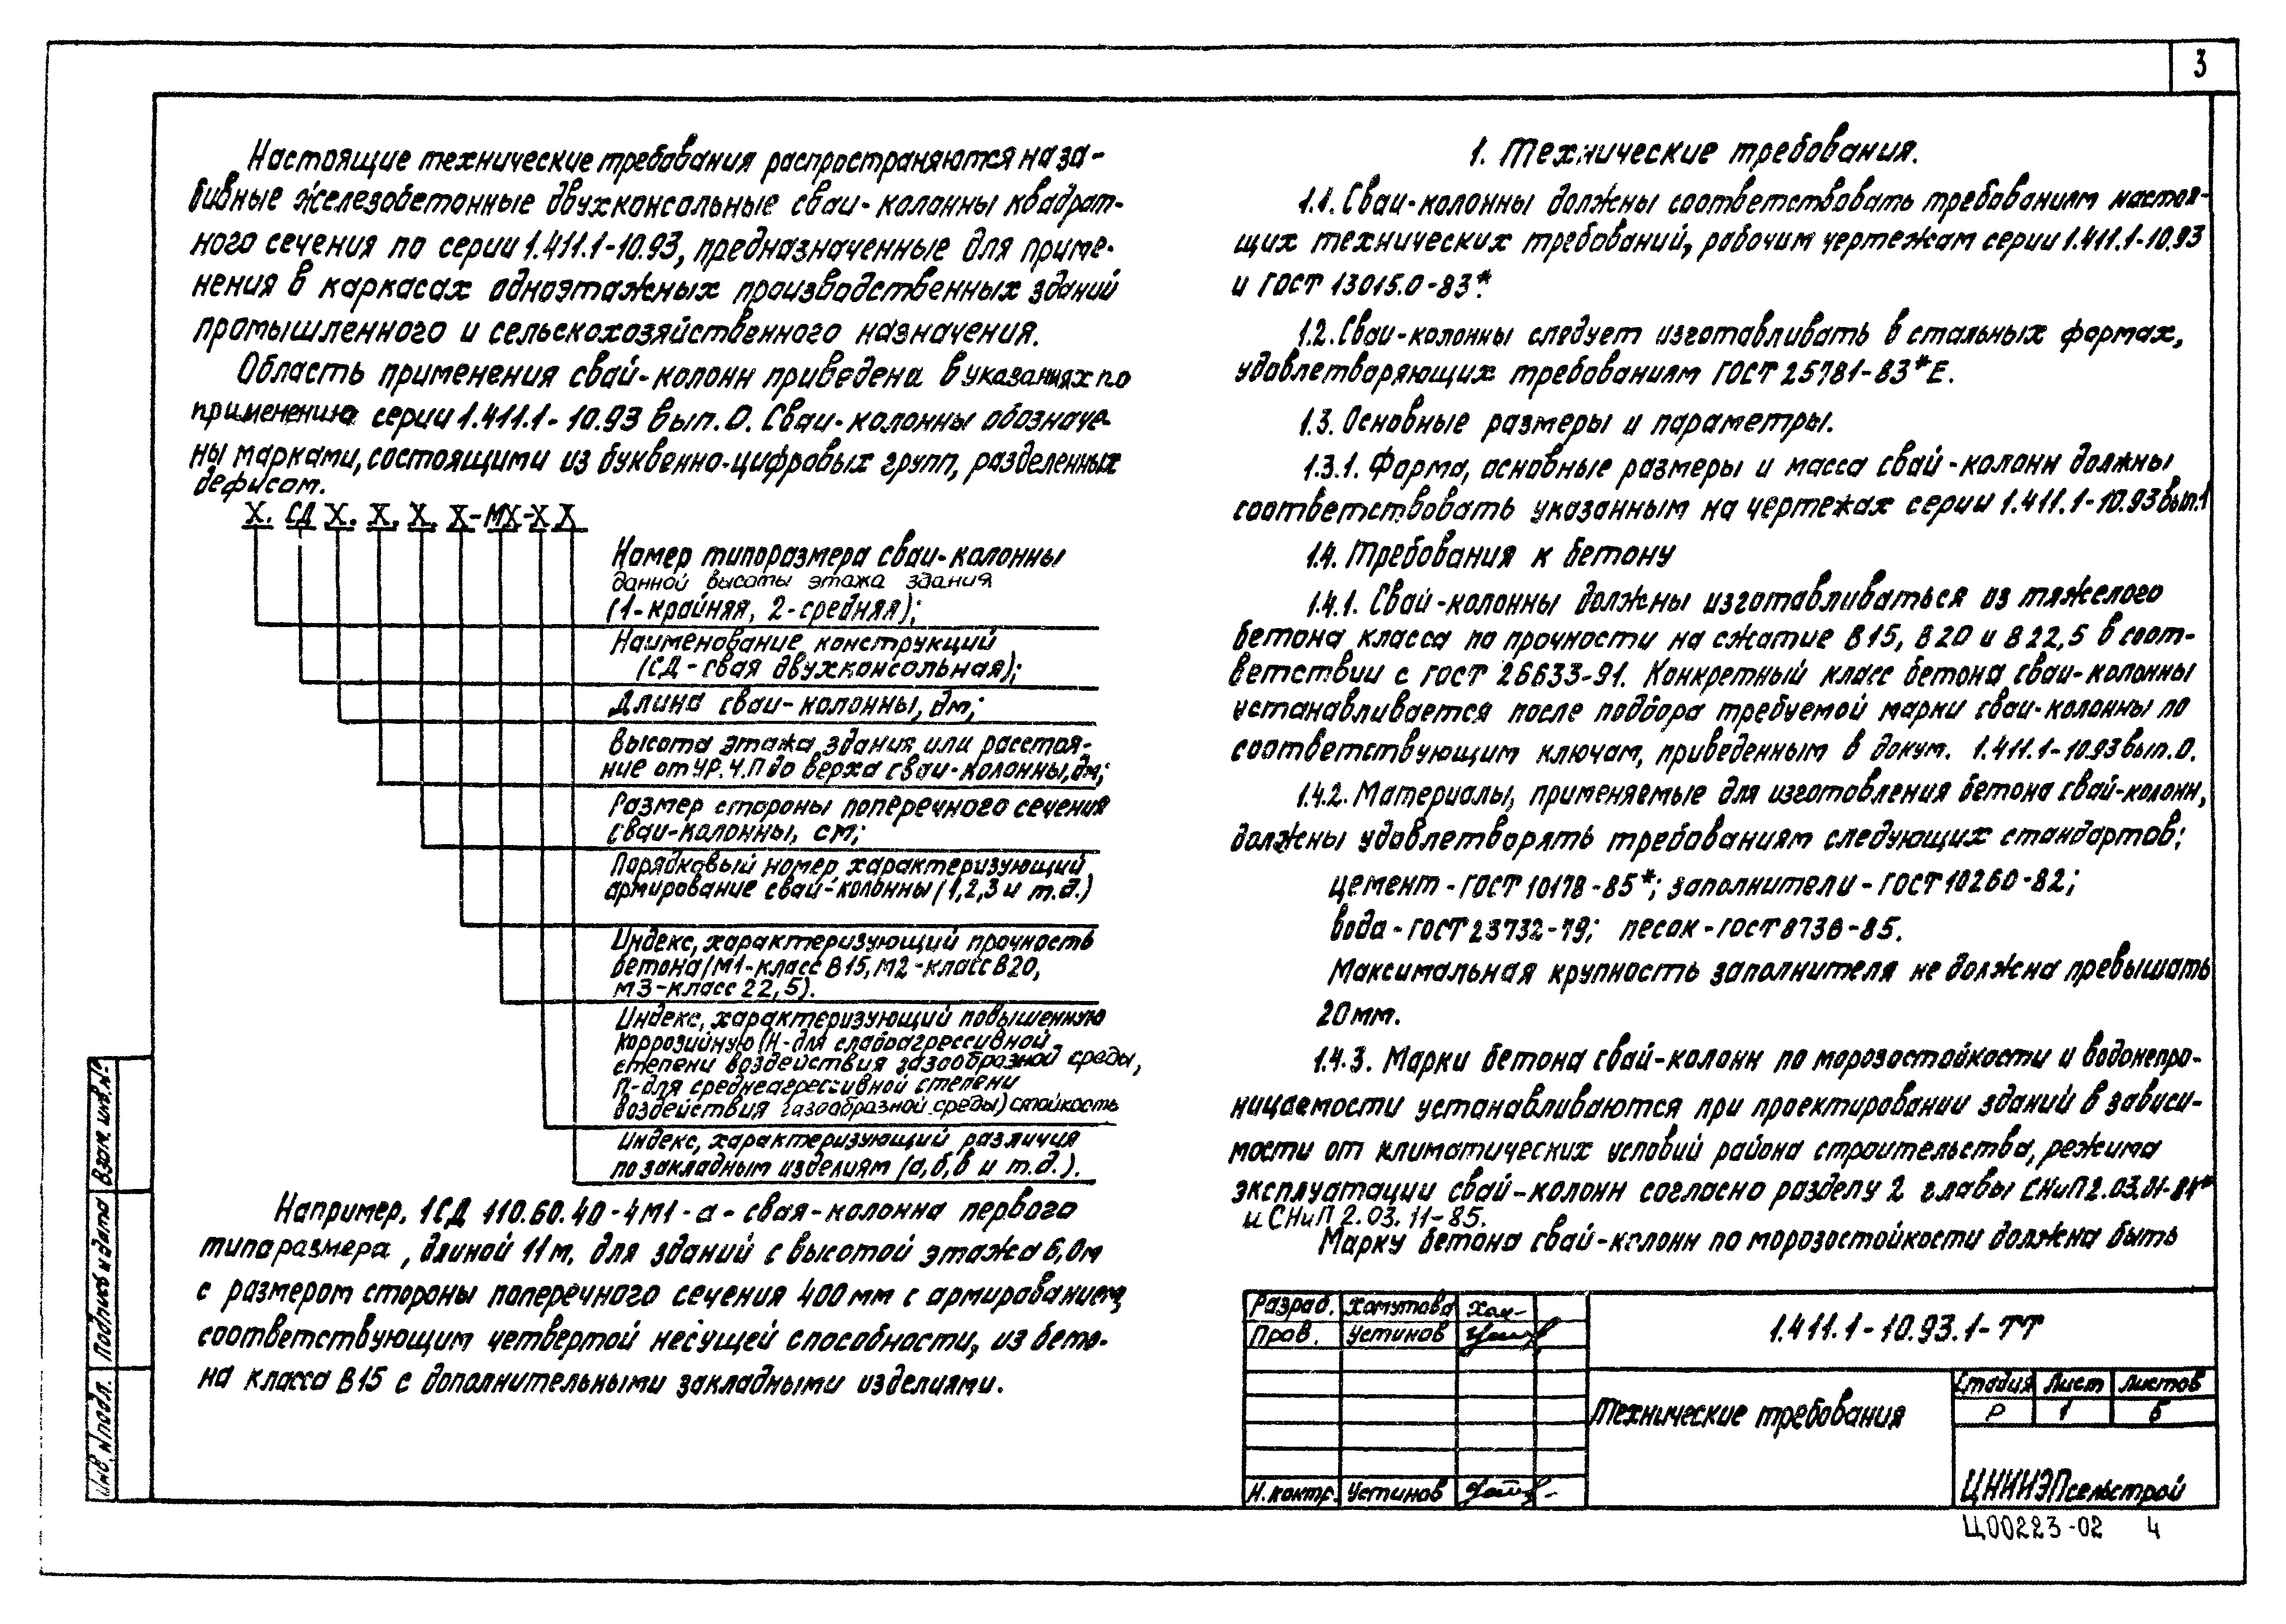 3
Настоящие технические требования распространяются на за-
бивные железобетонные двухконсольные сваи-колонны квадрат-
ного сечения по серии 1.411.1-10.93, предназначенные для приме-
нения в каркасах одноэтажных производственных зданий
промышленного и сельскохозяйственного назначения.
Область применения свай-колонн приведена в указаниях по
применению серии 1.411.1-10.93 вып.0. Сваи-колонны обозначе-
ны марками, состоящими из буквенно-цифровых групп, разделенных
дефисом.
X. СД X. X. X. X-МX-X X
Номер типоразмера сваи-колонны
данной высоты этажа здания
(1-крайняя, 2-средняя);
Наименование конструкций
(СД-свая двухконсольная);
Длина сваи-колонны, дм;
Высота этажа здания или расстоя-
ние от УР.Ч.П до верха сваи-колонны, дм;
Размер стороны поперечного сечения
сваи-колонны, см;
Порядковый номер, характеризующий
армирование свай-колонны (1,2,3 и т.д.)
Индекс, характеризующий прочность
бетона (М1-класс В15, М2-класс В20,
М3-класс 22,5).
Индекс, характеризующий повышенную
коррозийную (Н-для слабоагрессивной
степени воздействия газообразной среды,
П-для среднеагрессивной степени
воздействия газообразной среды) стойкость
Индекс, характеризующий различия
по закладным изделиям (а,б,в и т.д.).
Например, 1СД 110.60.40-4М1-а-свая-колонна первого
типоразмера, длиной 11м, для зданий с высотой этажа 6,0м
с размером стороны поперечного сечения 400мм с армированием,
соответствующим четвертой несущей способности, из бето-
на класса В15 с дополнительными закладными изделиями.
1. Технические требования.
1.1. Сваи-колонны должны соответствовать требованиям настоя-
щих технических требований, рабочим чертежам серии 1.411.1-10.93
и ГОСТ 13015.0-83*.
1.2. Сваи-колонны следует изготавливать в стальных формах,
удовлетворяющих требованиям ГОСТ 25781-83*Е.
1.3. Основные размеры и параметры.
1.3.1. Форма, основные размеры и масса свай-колонн должны
соответствовать указанным на чертежах серии 1.411.1-10.93 вып.1
1.4. Требования к бетону
1.4.1. Свай-колонны должны изготавливаться из тяжелого
бетона класса по прочности на сжатие В15, В20 и В22,5 в соот-
ветствии с ГОСТ 26633-91. Конкретный класс бетона сваи-колонны
устанавливается после подбора требуемой марки сваи-колонны по
соответствующим ключам, приведенным в докум. 1.411.1-10.93 вып.0.
1.4.2. Материалы, применяемые для изготовления бетона свай-колонн,
должны удовлетворять требованиям следующих стандартов:
цемент-ГОСТ 10178-85*; заполнители-ГОСТ 10260-82;
вода-ГОСТ 23732-79; песок-ГОСТ 8736-85.
Максимальная крупность заполнителя не должна превышать
20мм.
1.4.3. Марки бетона свай-колонн по морозостойкости и водонепро-
ницаемости устанавливаются при проектировании зданий в зависи-
мости от климатических условий района строительства, режима
эксплуатации свай-колонн согласно разделу 2 главы СНиП 2.03.01-84*
и СНиП 2.03.11-85.
Марку бетона свай-колонн по морозостойкости должна быть
Разраб. Хомутова
Пров. Устинов
Н.контр. Устинов
1.411.1-10.93.1-ТТ
Технические требования
Стадия Лист Листов
Р 1 6
ЦНИИЭПсельстрой
Ц00223-02 4
Взам. инв.№
Подпись и дата
Инв.№подл.